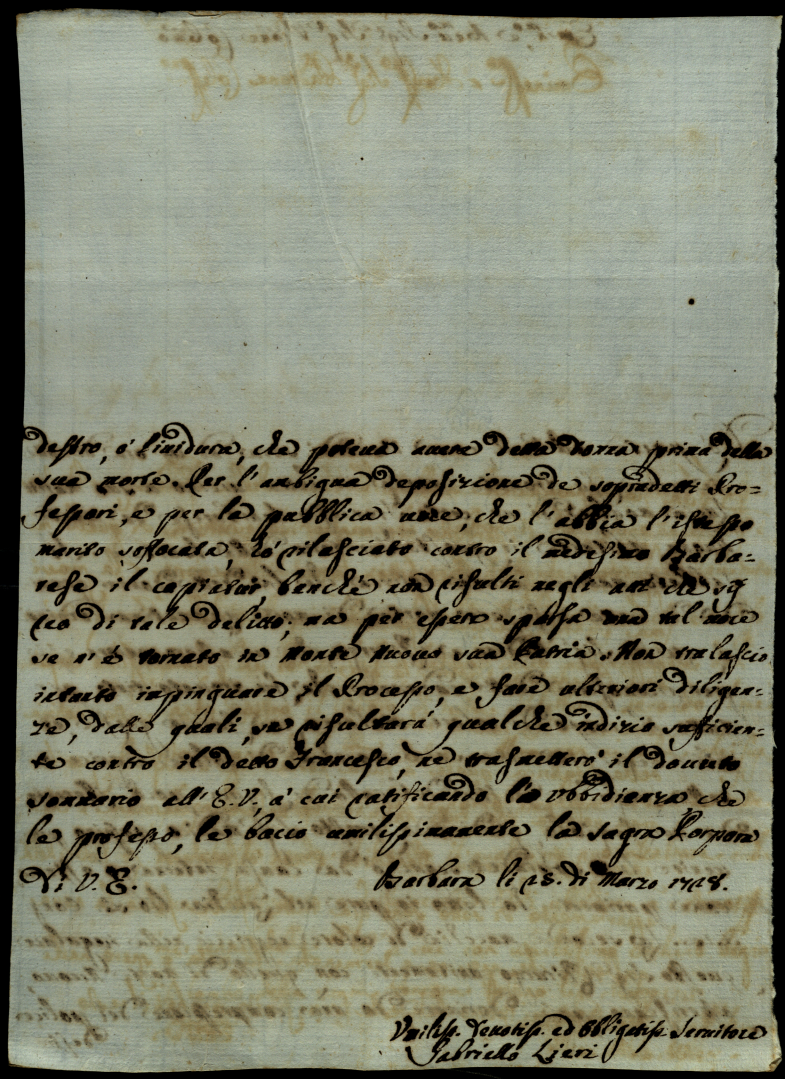 destro, ò lividura, che poteva avere detta donna prima della
sua morte. Per l'ambigua deposizione de sopradetti Pro=
fessori, e per la pubblica voce, che l'abbia l'istesso
marito soffocata, hò rilasciato contro il medesimo Barba=
rese il capiatur, benche non risulti negli atti che
reo di tale delitto; ma per essere sparsa una tal voce
se n'è tornato in Monte Nuovo sua Patria. Non tralascio
intanto impinguare il Processo, e fare ulteriori diligen=
ze, dalle quali, se risultarà qualche indizio sufficien=
te contro il detto Francesco, ne trasmetterò il dovuto
sommario all'E.V., à cui ratificando l'ubbidienza, che
le professo, le bacio umilissimamente la sagra Porpora
Di V. E. Barbara li 28. di Marzo 1728.
Umiliss. Devotiss. ed Obligatiss Servitore
Gabriello Lieri